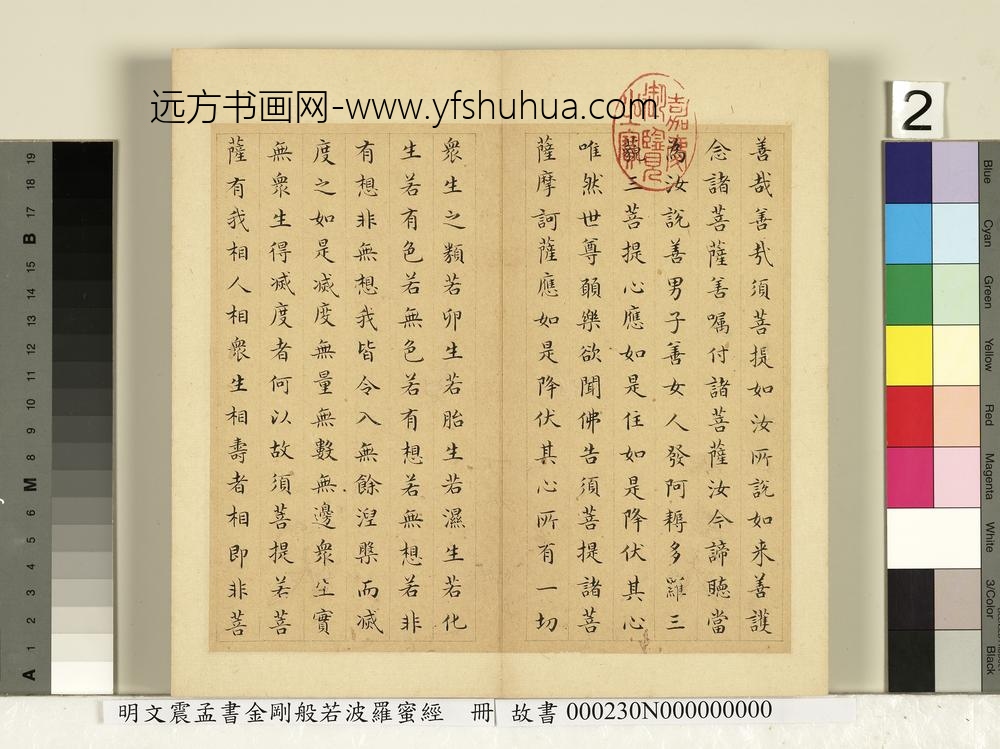 远方书画网-www.yfshuhua.com
嘉慶
御覽
之寶
善哉善哉須菩提如汝所說如来善護
念諸菩薩善嘱付諸菩薩汝今諦聽當
為汝說善男子善女人發阿耨多羅三
藐三菩提心應如是住如是降伏其心
唯然世尊願樂欲聞佛告須菩提諸菩
薩摩訶薩應如是降伏其心所有一切
衆生之類若卵生若胎生若濕生若化
生若有色若無色若有想若無想若非
有想非無想我皆令入無餘涅槃而滅
度之如是滅度無量無數無邊衆生實
無衆生得滅度者何以故須菩提若菩
薩有我相人相衆生相壽者相即非菩
2
Blue
Cyan
Green
Yellow
Red
Magenta
White
3/Color
Black
19
18
17
B
15
14
13
12
11
10
9
8
M
6
5
4
3
2
1
A
明文震孟書金剛般若波羅蜜經 冊 故書000230N000000000